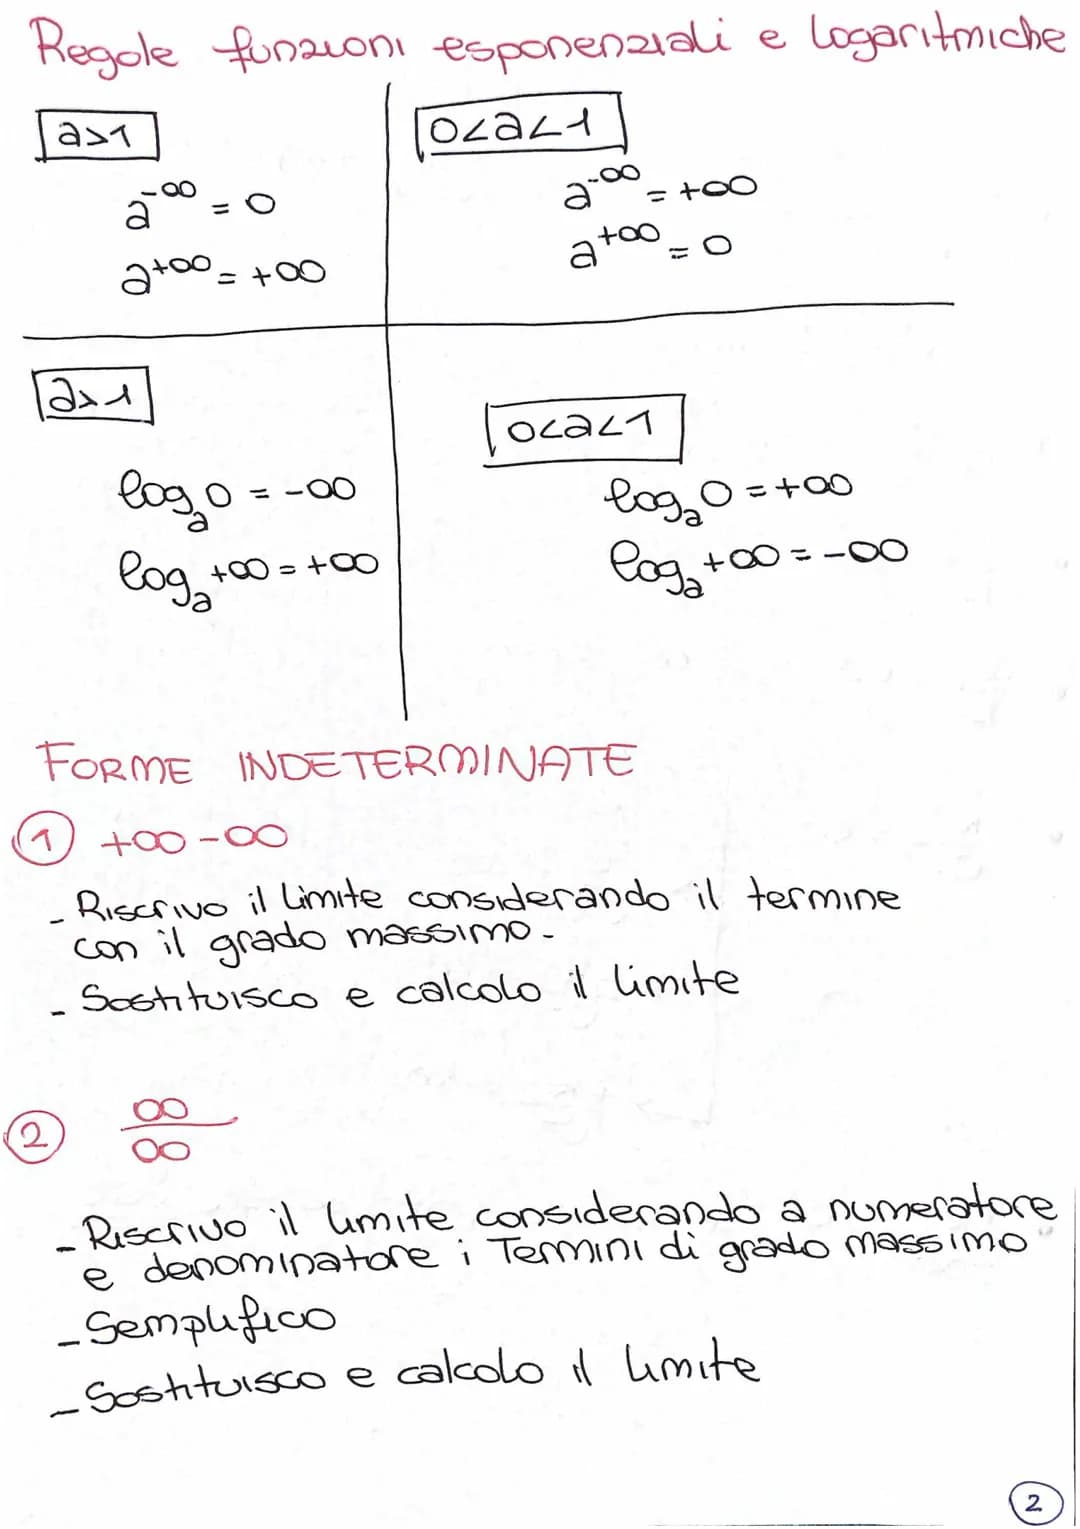 Regole funzioni esponenziali e logaritmiche
a>1
0<a<1
a^-∞ = 0
a^-∞ = +∞
a^+∞ = +∞
a^+∞ = 0
a>1
0<a<1
log_a 0 = -∞
log_a 0 = +∞
log_a +∞ = +∞
log_a +∞ = -∞
FORME INDETERMINATE
1 +∞-∞
- Riscrivo il limite considerando il termine
con il grado massimo.
- Sostituisco e calcolo il limite
2 ∞/∞
- Riscrivo il limite considerando a numeratore
e denominatore i Termini di grado massimo
- Semplifico
- Sostituisco e calcolo il limite
2